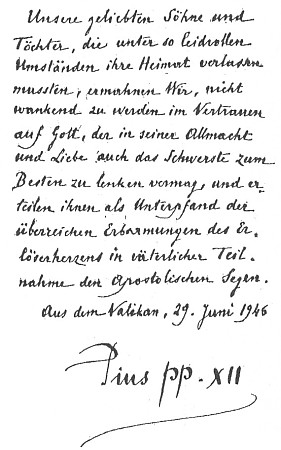 Unsere geliebten Söhne und
Töchter, die unter so leidvollen
Umständen ihre Heimat verlassen
mussten, ermahnen Wir, nicht
wankend zu werden im Vertrauen
auf Gott, der in seiner Allmacht
und Liebe auch das Schwerste zum
Besten zu lenken vermag, und er-
teilen ihnen als Unterpfand der
überreichen Erbarmungen des Er-
löserherzens in väterlicher Teil-
nahme den Apostolischen Segen.
Aus dem Vatikan, 29. Juni 1946
Pius pp. XII